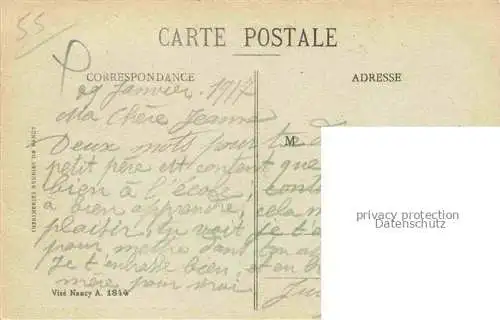 55
CARTE POSTALE
CORRESPONDANCE
ADRESSE
29 Janvier 1917
Ma Chère Jeanne
Deux mots pour te d
M
petit père est content que
bien à l'école, cont
à bien apprendre, cela m
plaisir, tu voit je t'e
pour mettre dans ton a
Je t'embrasse bien, et en b
mère pour moi
Ju
IMPRIMERIES RÉUNIES DE NANCY
Visé Nancy A. 1844
privacy protection
Datenschutz